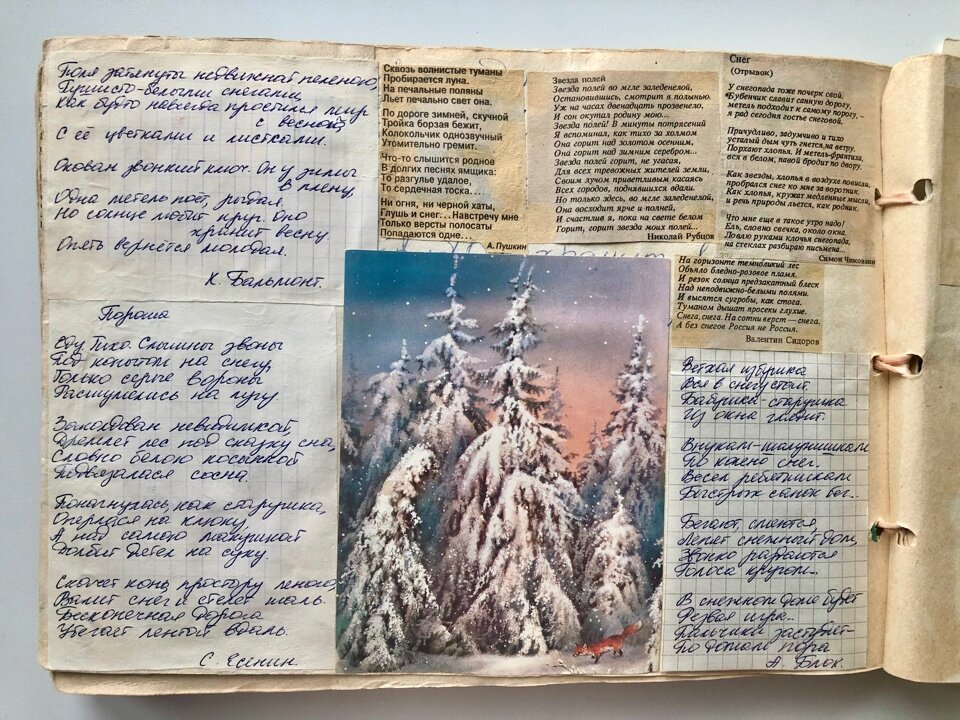 Поля затянуты недвижной пеленою,
Пушисто-белыми снегами,
Как будто навсегда простился мир
с весной
С её цветками и листками.
Окован звонкий ключ. Он у зимы
в плену,
Одна метель поёт, рыдая.
Но солнце любит круг. Оно
хранит весну
Опять вернётся молодая.
К. Бальмонт.
Пороша
Еду. Тихо. Слышны звоны
Под копытом на снегу,
Только серые вороны
Расшумелись на лугу.
Заколдован невидимкой,
Дремлет лес под сказку сна,
Словно белою косынкой
Подвязалася сосна.
Понагнулась, как старушка,
Оперлася на клюку,
А над самою макушкой
Долбит дятел на суку.
Скачет конь, простору много,
Валит снег и стелет шаль.
Бесконечная дорога
Убегает лентой вдаль.
С. Есенин.
Сквозь волнистые туманы
Пробирается луна.
На печальные поляны
Льет печально свет она.
По дороге зимней, скучной
Тройка борзая бежит,
Колокольчик однозвучный
Утомительно гремит.
Что-то слышится родное
В долгих песнях ямщика:
То разгулье удалое,
То сердечная тоска...
Ни огня, ни черной хаты,
Глушь и снег... Навстречу мне
Только версты полосаты
Попадаются одне...
А. Пушкин
Звезда полей
Звезда полей во мгле заледенелой,
Остановившись, смотрит в полынью.
Уж на часах двенадцать прозвенело,
И сон окутал родину мою...
Звезда полей! В минуты потрясений
Я вспоминал, как тихо за холмом
Она горит над золотом осенним,
Она горит над зимним серебром...
Звезда полей горит, не угасая,
Для всех тревожных жителей земли,
Своим лучом приветливым касаясь
Всех городов, поднявшихся вдали.
Но только здесь, во мгле заледенелой,
Она восходит ярче и полней,
И счастлив я, пока на свете белом
Горит, горит звезда моих полей...
Николай Рубцов
Снег
(Отрывок)
У снегопада тоже почерк свой,
Бубенчик славит санную дорогу,
метель подходит к самому порогу, —
я рад сегодня гостье снеговой.
Причудливо, задумчиво и тихо
усталый дым чуть гнется на ветру.
Порхают хлопья. И метель-франтиха,
вся в белом, павой бродит по двору.
Как звезды, хлопья в воздухе повисли,
пробрался снег ко мне за воротник.
Как хлопья, кружат медленные мысли,
и речь природы льется, как родник.
Что мне еще в такое утро надо!
Ель, словно свечка, около окна.
Ловлю руками клочья снегопада,
на стеклах разбираю письмена..
Симон Чиковани
На горизонте темноликий лес
Объяло бледно-розовое пламя.
И резок солнца предзакатный блеск
Над неподвижно-белыми полями.
И высятся сугробы, как стога.
Туманом дышат просеки глухие.
Снега, снега. На сотни верст — снега.
А без снегов Россия не Россия.
Валентин Сидоров
Ветхая избушка
Вся в снегу стоит.
Бабушка-старушка
Из окна глядит.
Внукам-шалунишкам
По колено снег.
Весел ребятишкам
Быстрых санок бег..
Бегают, смеются,
Лепят снежный дом,
Звонко раздаются
Голоса кругом..
В снежном доме будет
Резвая игра..
Пальчики застудят —
По домам пора
А. Блок.